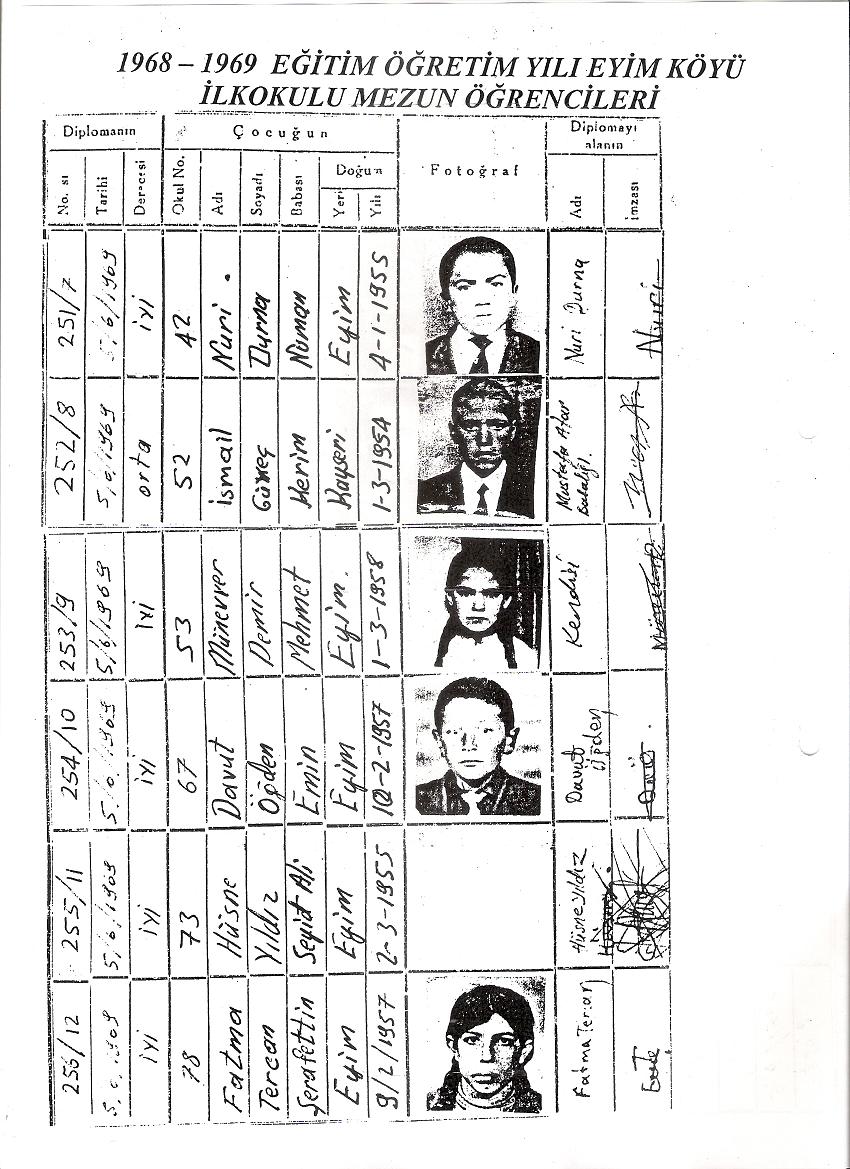 1968 – 1969 EĞİTİM ÖĞRETİM YILI EYİM KÖYÜ
İLKOKULU MEZUN ÖĞRENCİLERİ
Diplomanın Çocuğun Fotoğraf Diplomayı alanın
No. sı Tarihi Derecesi Okul No. Adı Soyadı Babası Doğun Yeri Yılı Adı İmzası
251/7 5/6/1969 iyi 42 Nuri Durna Numan Eyim 4-1-1955 Nuri Durna Nuri
252/8 5/6/1969 orta 52 İsmail Güneç Kerim Kayseri 1-3-1954 Mustafa Atar
253/9 5/6/1969 iyi 53 Münevver Demir Mehmet Eyim. 1-3-1958 Kendisi
254/10 5/6/1969 iyi 67 Davut Öğden Emin Eyim 10-2-1957 Davut Öğden
255/11 5/6/1969 iyi 73 Hüsne Yıldız Seyid Ali Eyim 2-3-1955 Hüsne Yıldız
256/12 5/6/1969 iyi 78 Fatma Tercan Şerafettin Eyim 9/2/1957 Fatma Tercan